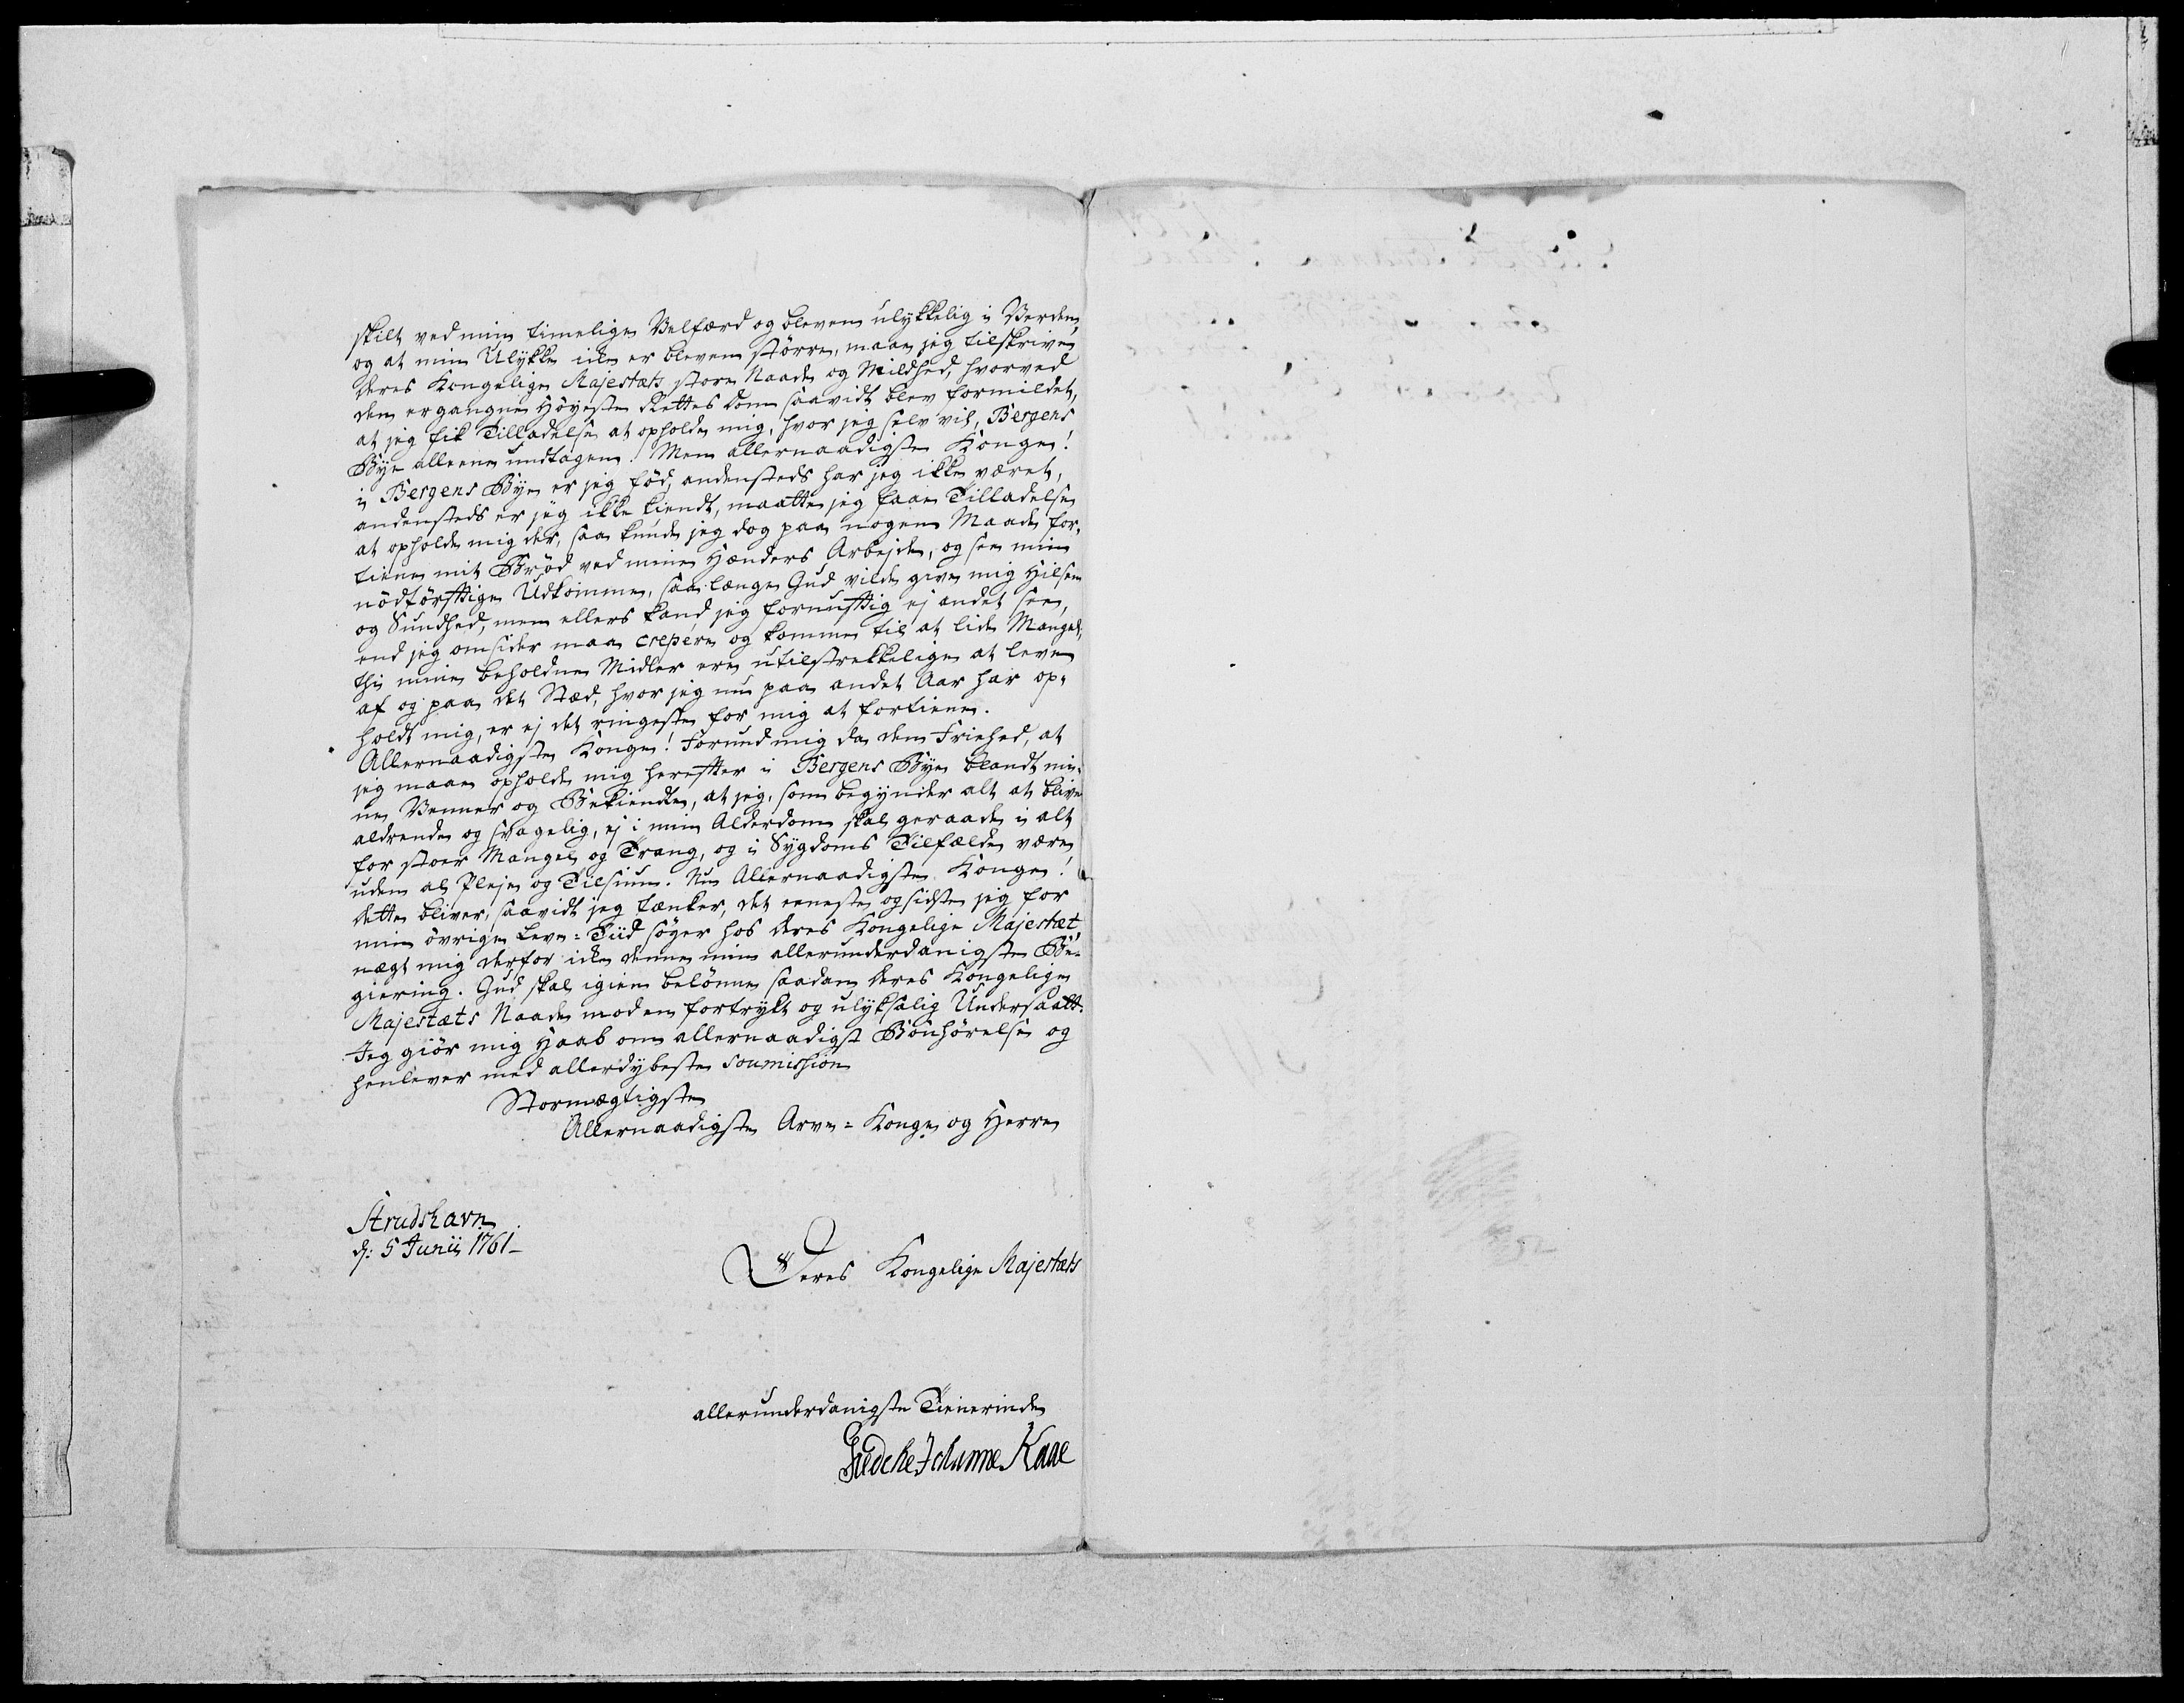 skilt ved min timelige Velfærd og bleven ulykkelig i Verden,
og at min Ulykke icke er bleven större, maae jeg tilskrive
Deres Kongelige Majestæts store Naade og Mildhed, hvorved
den ergangne Höyeste Rettes Dom saavidt blev formildet,
at jeg fik Tilladelse at opholde mig, hvor jeg selv vil, Bergens
Bye alleene undtagen! Men allernaadigste Konge!
i Bergens Bye er jeg föd, andensteds har jeg ikke været,
andensteds er jeg ikke kiendt, maatte jeg faae Tilladelse
at opholde mig der, saa kunde jeg dog paa nogen Maade for-
tiene mit Bröd ved mine Hænders Arbejde, og see min
nödtörfftige Udkomme, saa længe Gud vilde give mig Hilsen
og Sundhed, men ellers kand jeg fornufftig ej andet see,
end jeg omsider maa crepere og komme til at lide Mangel,
thi mine beholdne Midler ere utilstrekkelige at leve
af og paa det Stæd, hvor jeg nu paa andet Aar har op-
holdt mig, er ej det ringeste for mig at fortiene.
Allernaadigste Konge! Forund mig da den Friehed, at
jeg maae opholde mig herefter i Bergens Bye blandt mi-
ne Venner og Bekiendte, at jeg, som begynder alt at blive
aldrende og svagelig, ej i min Alderdom skal geraade i alt
for stoer Mangel og Trang, og i Sygdoms Tilfælde være
uden al Pleje og Tilsiun. Nu Allernaadigste Konge!
dette bliver, saavidt jeg tænker, det eeneste og sidste jeg for
min övrige Leve-Tiid söger hos Deres Kongelige Majestæt,
nægt mig derfor icke denne min allerunderdanigste Be-
giering. Gud skal igien belönne saadan Deres Kongelige
Majestæts Naade mod en fortrykt og ulyksalig Undersaatt.
Jeg giör mig Haab om allernaadigst Bönhörelse og
henlever med allerdybeste Soumission
Stormægtigste
Allernaadigste Arve-Konge og Herre
Strudshavn
d: 5 Junii 1761
Deres Kongelige Majestæts
allerunderdanigste Tienerinde
Giedche Johanne Kaae